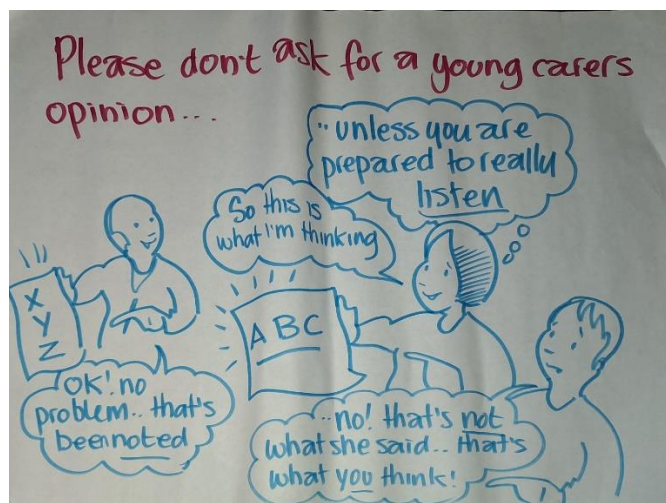 Please don't ask for a young carers
opinion...
..unless you are
prepared to really
listen
So this is
what I'm thinking
X
Y
Z
A BC
OK! no
problem.. that's
been noted
..no! that's not
what she said.. that's
what you think!